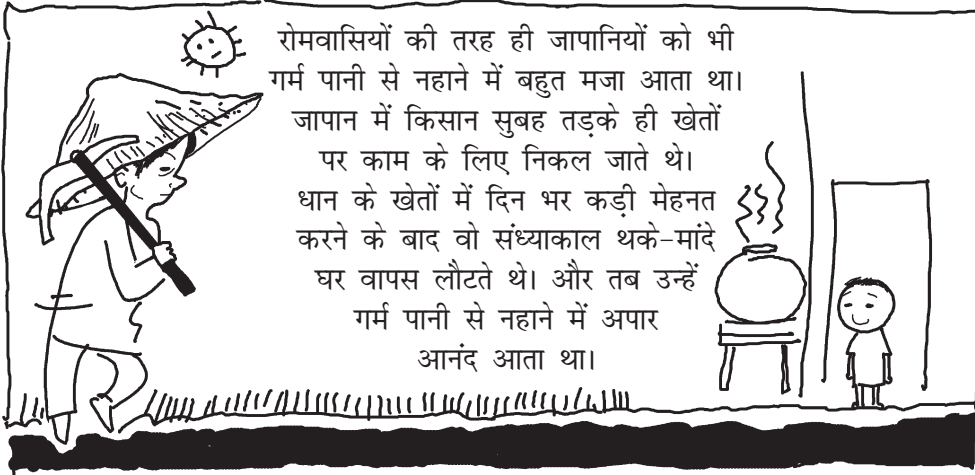 रोमवासियों की तरह ही जापानियों को भी
गर्म पानी से नहाने में बहुत मजा आता था।
जापान में किसान सुबह तड़के ही खेतों
पर काम के लिए निकल जाते थे।
धान के खेतों में दिन भर कड़ी मेहनत
करने के बाद वो संध्याकाल थके-मांदे
घर वापस लौटते थे। और तब उन्हें
गर्म पानी से नहाने में अपार
आनंद आता था।